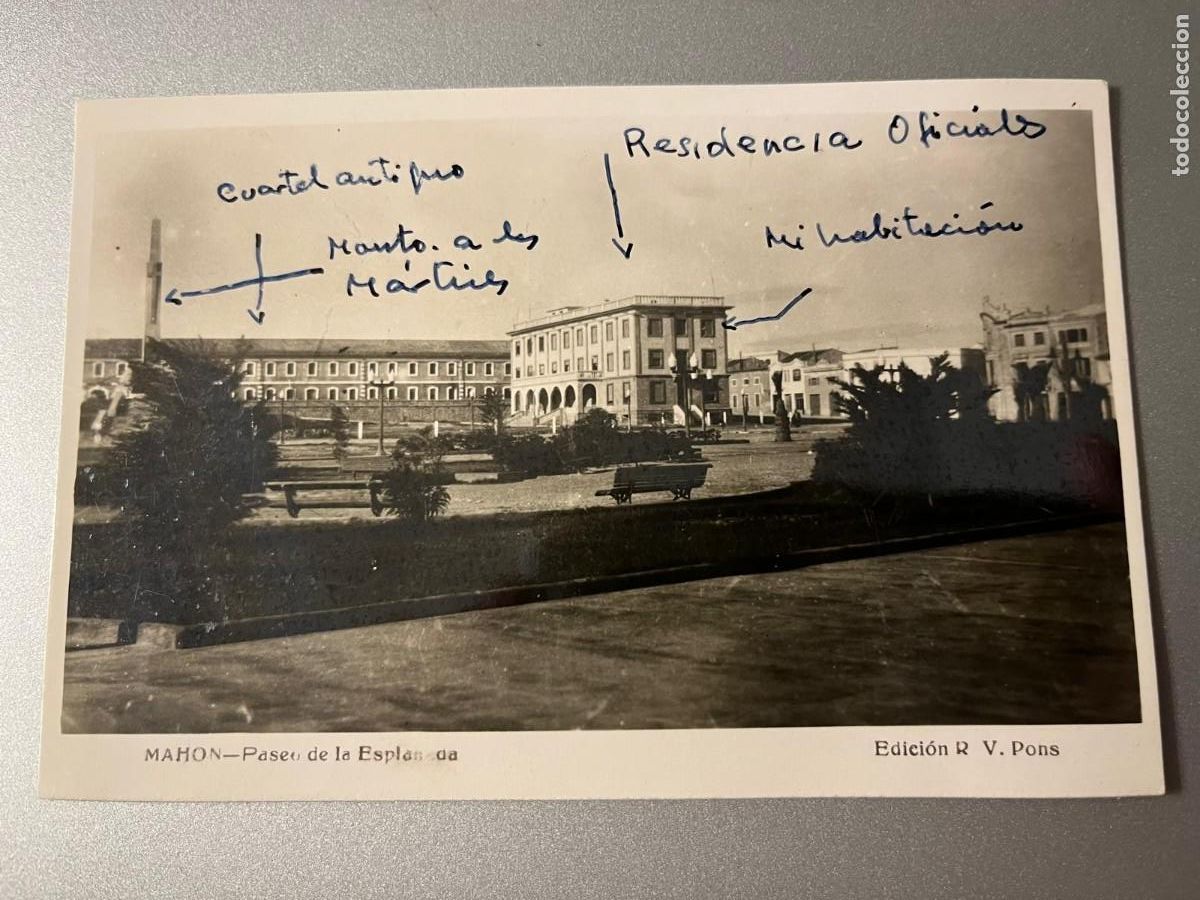 Residencia Oficiales
Cuartel antiguo
Mi habitación
Monto. a los
Mártires
MAHON—Paseo de la Esplanada
Edición R V. Pons
todocoleccion